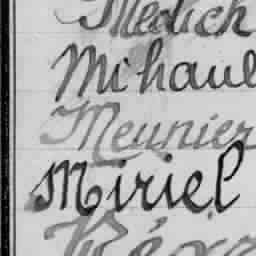 Medich
Mihaul
Meunier
Miriel